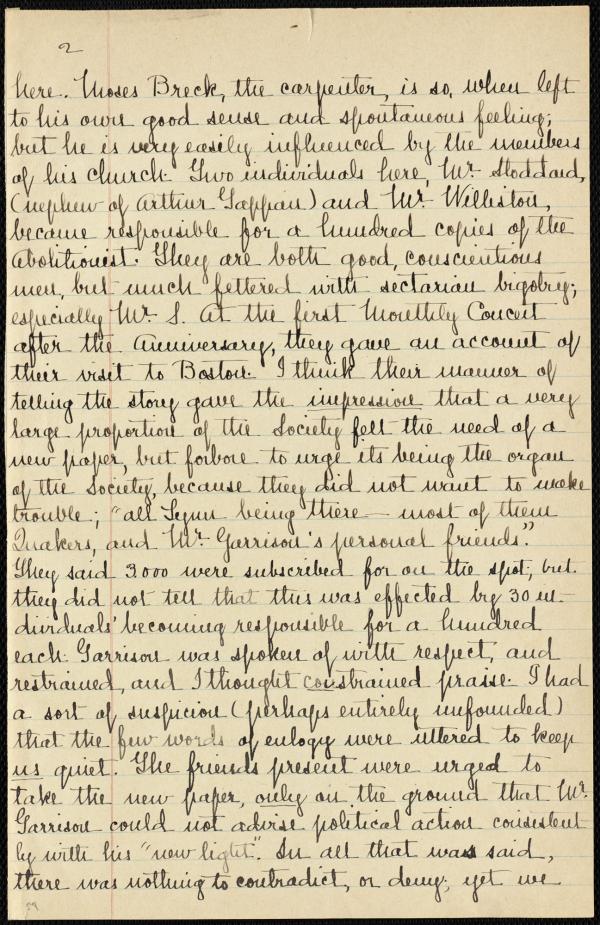 2
here. Moses Breck, the carpenter, is so, when left
to his own good sense and spontaneous feeling;
but he is very easily influenced by the members
of his church. Two individuals here, Mr. Stoddard,
(nephew of Arthur Tappan) and Mr. Williston,
became responsible for a hundred copies of the
Abolitionist. They are both good, conscientious
men, but much fettered with sectarian bigotry;
especially Mr. S. At the first Monthly Concert
after the Anniversary, they gave an account of
their visit to Boston. I think their manner of
telling the story gave the impression that a very
large proportion of the Society felt the need of a
new paper, but forbore to urge its being the organ
of the Society, because they did not want to make
trouble; "all Lynn being there — most of them
Quakers, and Mr. Garrison's personal friends."
They said 3000 were subscribed for on the spot; but
they did not tell that this was effected by 30 in-
dividuals' becoming responsible for a hundred
each. Garrison was spoken of with respect, and
restrained, and I thought constrained praise. I had
a sort of suspicion (perhaps entirely unfounded)
that the few words of eulogy were uttered to keep
us quiet. The friends present were urged to
take the new paper, only on the ground that Mr.
Garrison could not advise political action consistent
ly with his "new light". In all that was said,
there was nothing to contradict, or deny; yet we